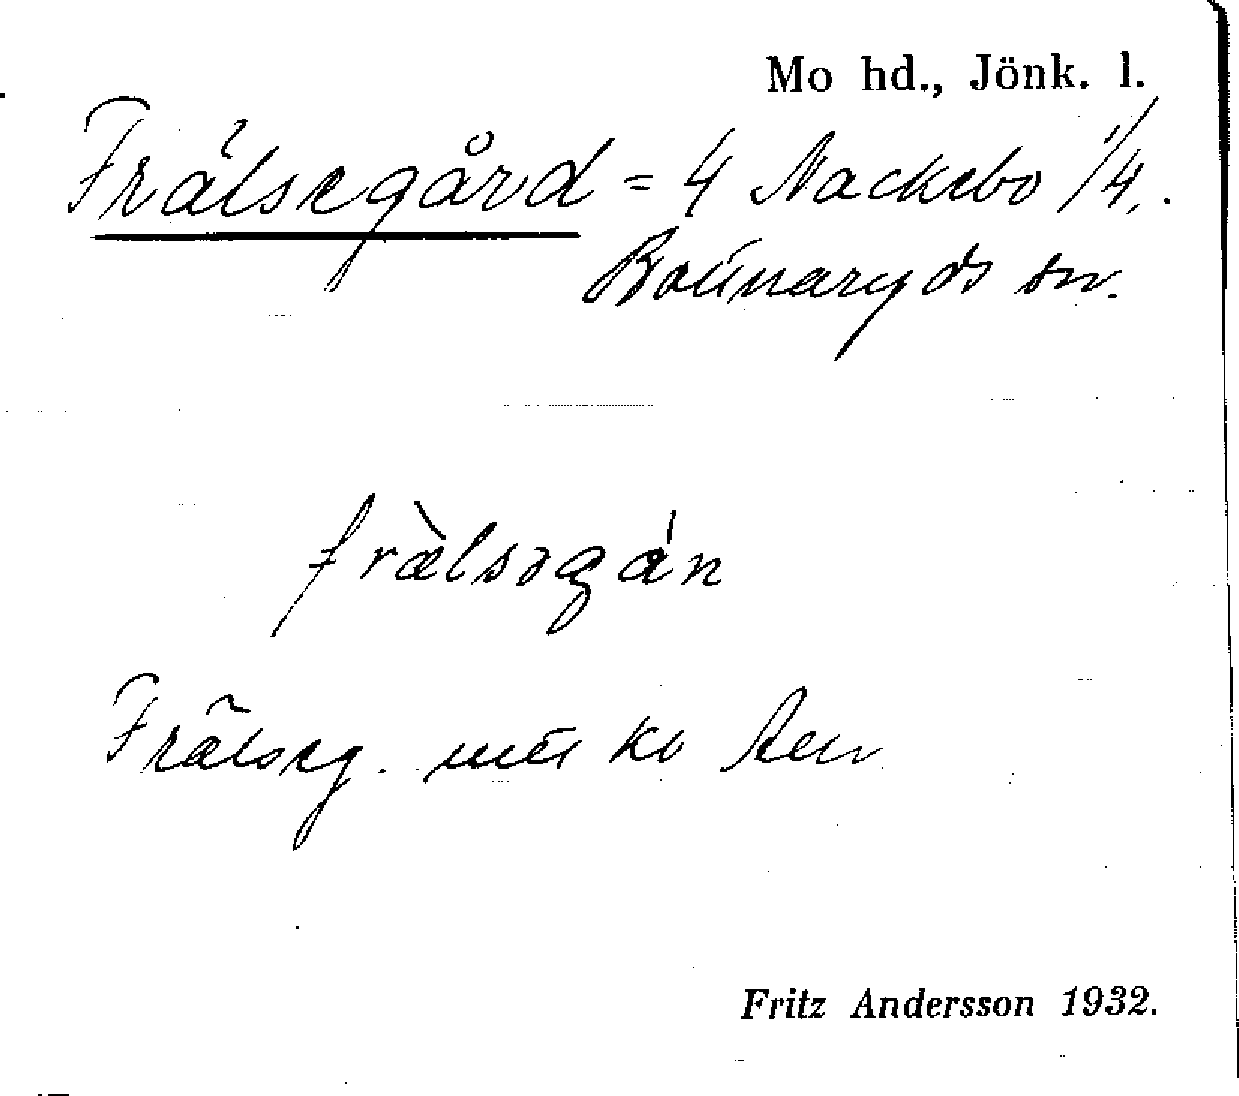 Mo hd., Jönk. l.
Frälsegård = 4 Nackebo 1/4.
Bottnaryds sn.
fràlsəgán
Frälseg. utu ko
Fritz Andersson 1932.